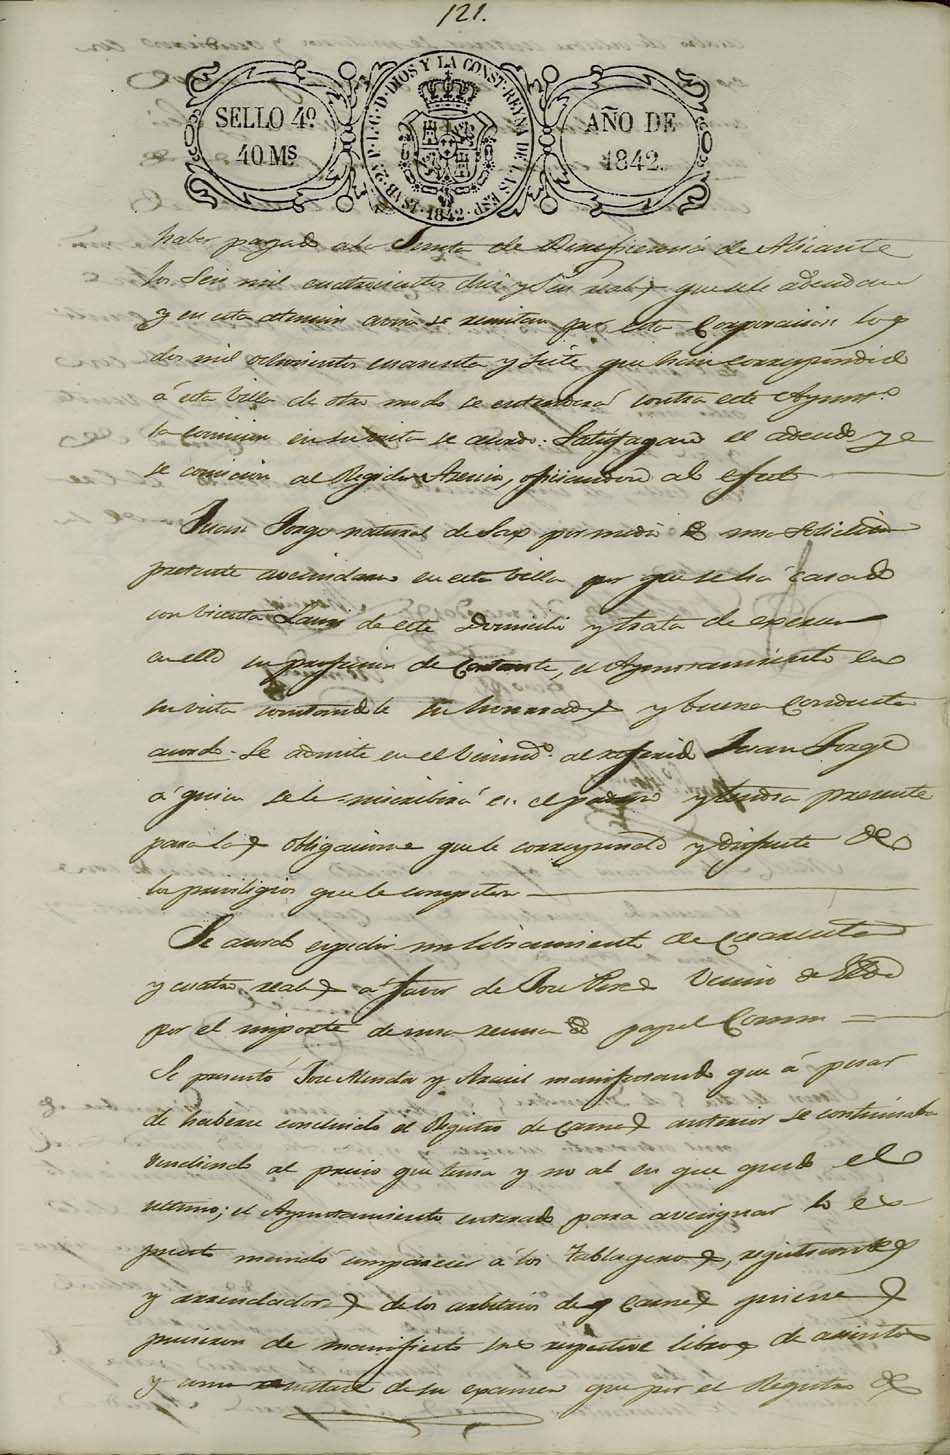 121.
SELLO 4º
40 Ms
ISAB. 2ª P. L. G. D. DIOS Y LA CONST. REYNA DE LAS ESP. 1842.
AÑO DE
1842.
haber pagado a la Junta de Beneficencia de Alicante
los seis mil cuatrocientos diez y seis reales que se le adeudan
y en esta atencion avisa se remitan por esta Corporacion los
dos mil ochocientos cuarenta y siete que han correspondido
á esta Villa de otro modo se entenderá contra este Ayunt.º
la comision en su vista se acordo: Satisfagase el adeudo y
se comision al Regidor Asencio, oficiandose al efecto
Juan Jorge natural de Sax por medio de una solicitud
pretente avecindarse en esta Villa por que se há casado
con Vicenta de este Domicilio y trata de egercer
en ello su profesion de Cortante, el Ayuntamiento en
su vista constandole su honradez y buena Conducta
acordo. Se admite en el Vecind.º al referido Juan Jorge
á quien se le inscribirá en el padron y tendra presente
para las obligaciones que le correspondan y disfrute de
los privilegios que le competen
Se acordo espedir un libramiento de Cuarenta
y cuatro reales á favor de Jose Perez Vecino de Elda
por el importe de una resma de papel Comun
Se presentó Jose Menda y manifestando que á pesar
de haberse concluido el Registro de Carnes anterior se continuaba
vendiendo al precio que tenia y no al en que quedo el
ultimo; el Ayuntamiento enterado para averiguar lo es
puesto mandó comparecer á los Tablageros, registrantes
y arrendadores de los arbitrios de Carnes quienes
pusieron de manifiesto sus respectivos libros de asientos
y como resultase de su examen que por el Registro de